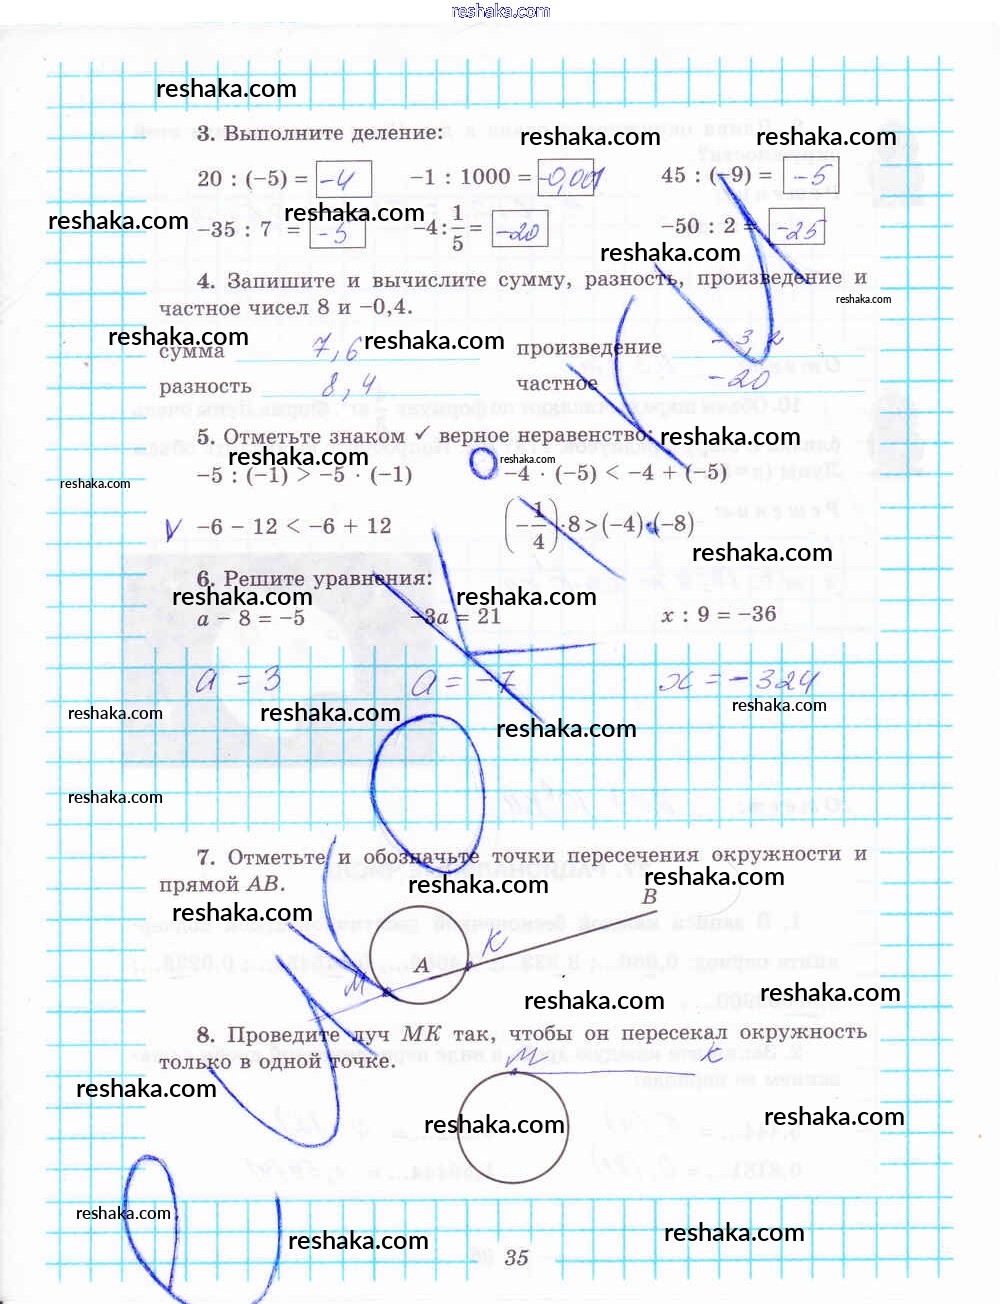 reshaka.com
reshaka.com
3. Выполните деление:
reshaka.com reshaka.com
20 : (−5) = -4 −1 : 1000 = -0,001 45 : (−9) = -5
reshaka.com reshaka.com
−35 : 7 = -5 −4 : 1/5 = -20 −50 : 2 = -25
reshaka.com
4. Запишите и вычислите сумму, разность, произведение и
reshaka.com
частное чисел 8 и −0,4.
reshaka.com reshaka.com
сумма 7,6 произведение -3,2
разность 8,4 частное -20
5. Отметьте знаком ✓ верное неравенство:
reshaka.com
reshaka.com reshaka.com
−5 : (−1) > −5 · (−1) −4 · (−5) < −4 + (−5)
reshaka.com
V −6 − 12 < −6 + 12 (−1/4) · 8 > (−4) · (−8)
reshaka.com
6. Решите уравнения:
reshaka.com reshaka.com
a − 8 = −5 −3a = 21 x : 9 = −36
a = 3 a = -7 x = -324
reshaka.com reshaka.com reshaka.com
reshaka.com
reshaka.com
7. Отметьте и обозначьте точки пересечения окружности и
прямой AB.
reshaka.com reshaka.com
B
reshaka.com
K
A
M
reshaka.com
8. Проведите луч MK так, чтобы он пересекал окружность
только в одной точке.
M K
reshaka.com
reshaka.com reshaka.com
reshaka.com
reshaka.com reshaka.com
35